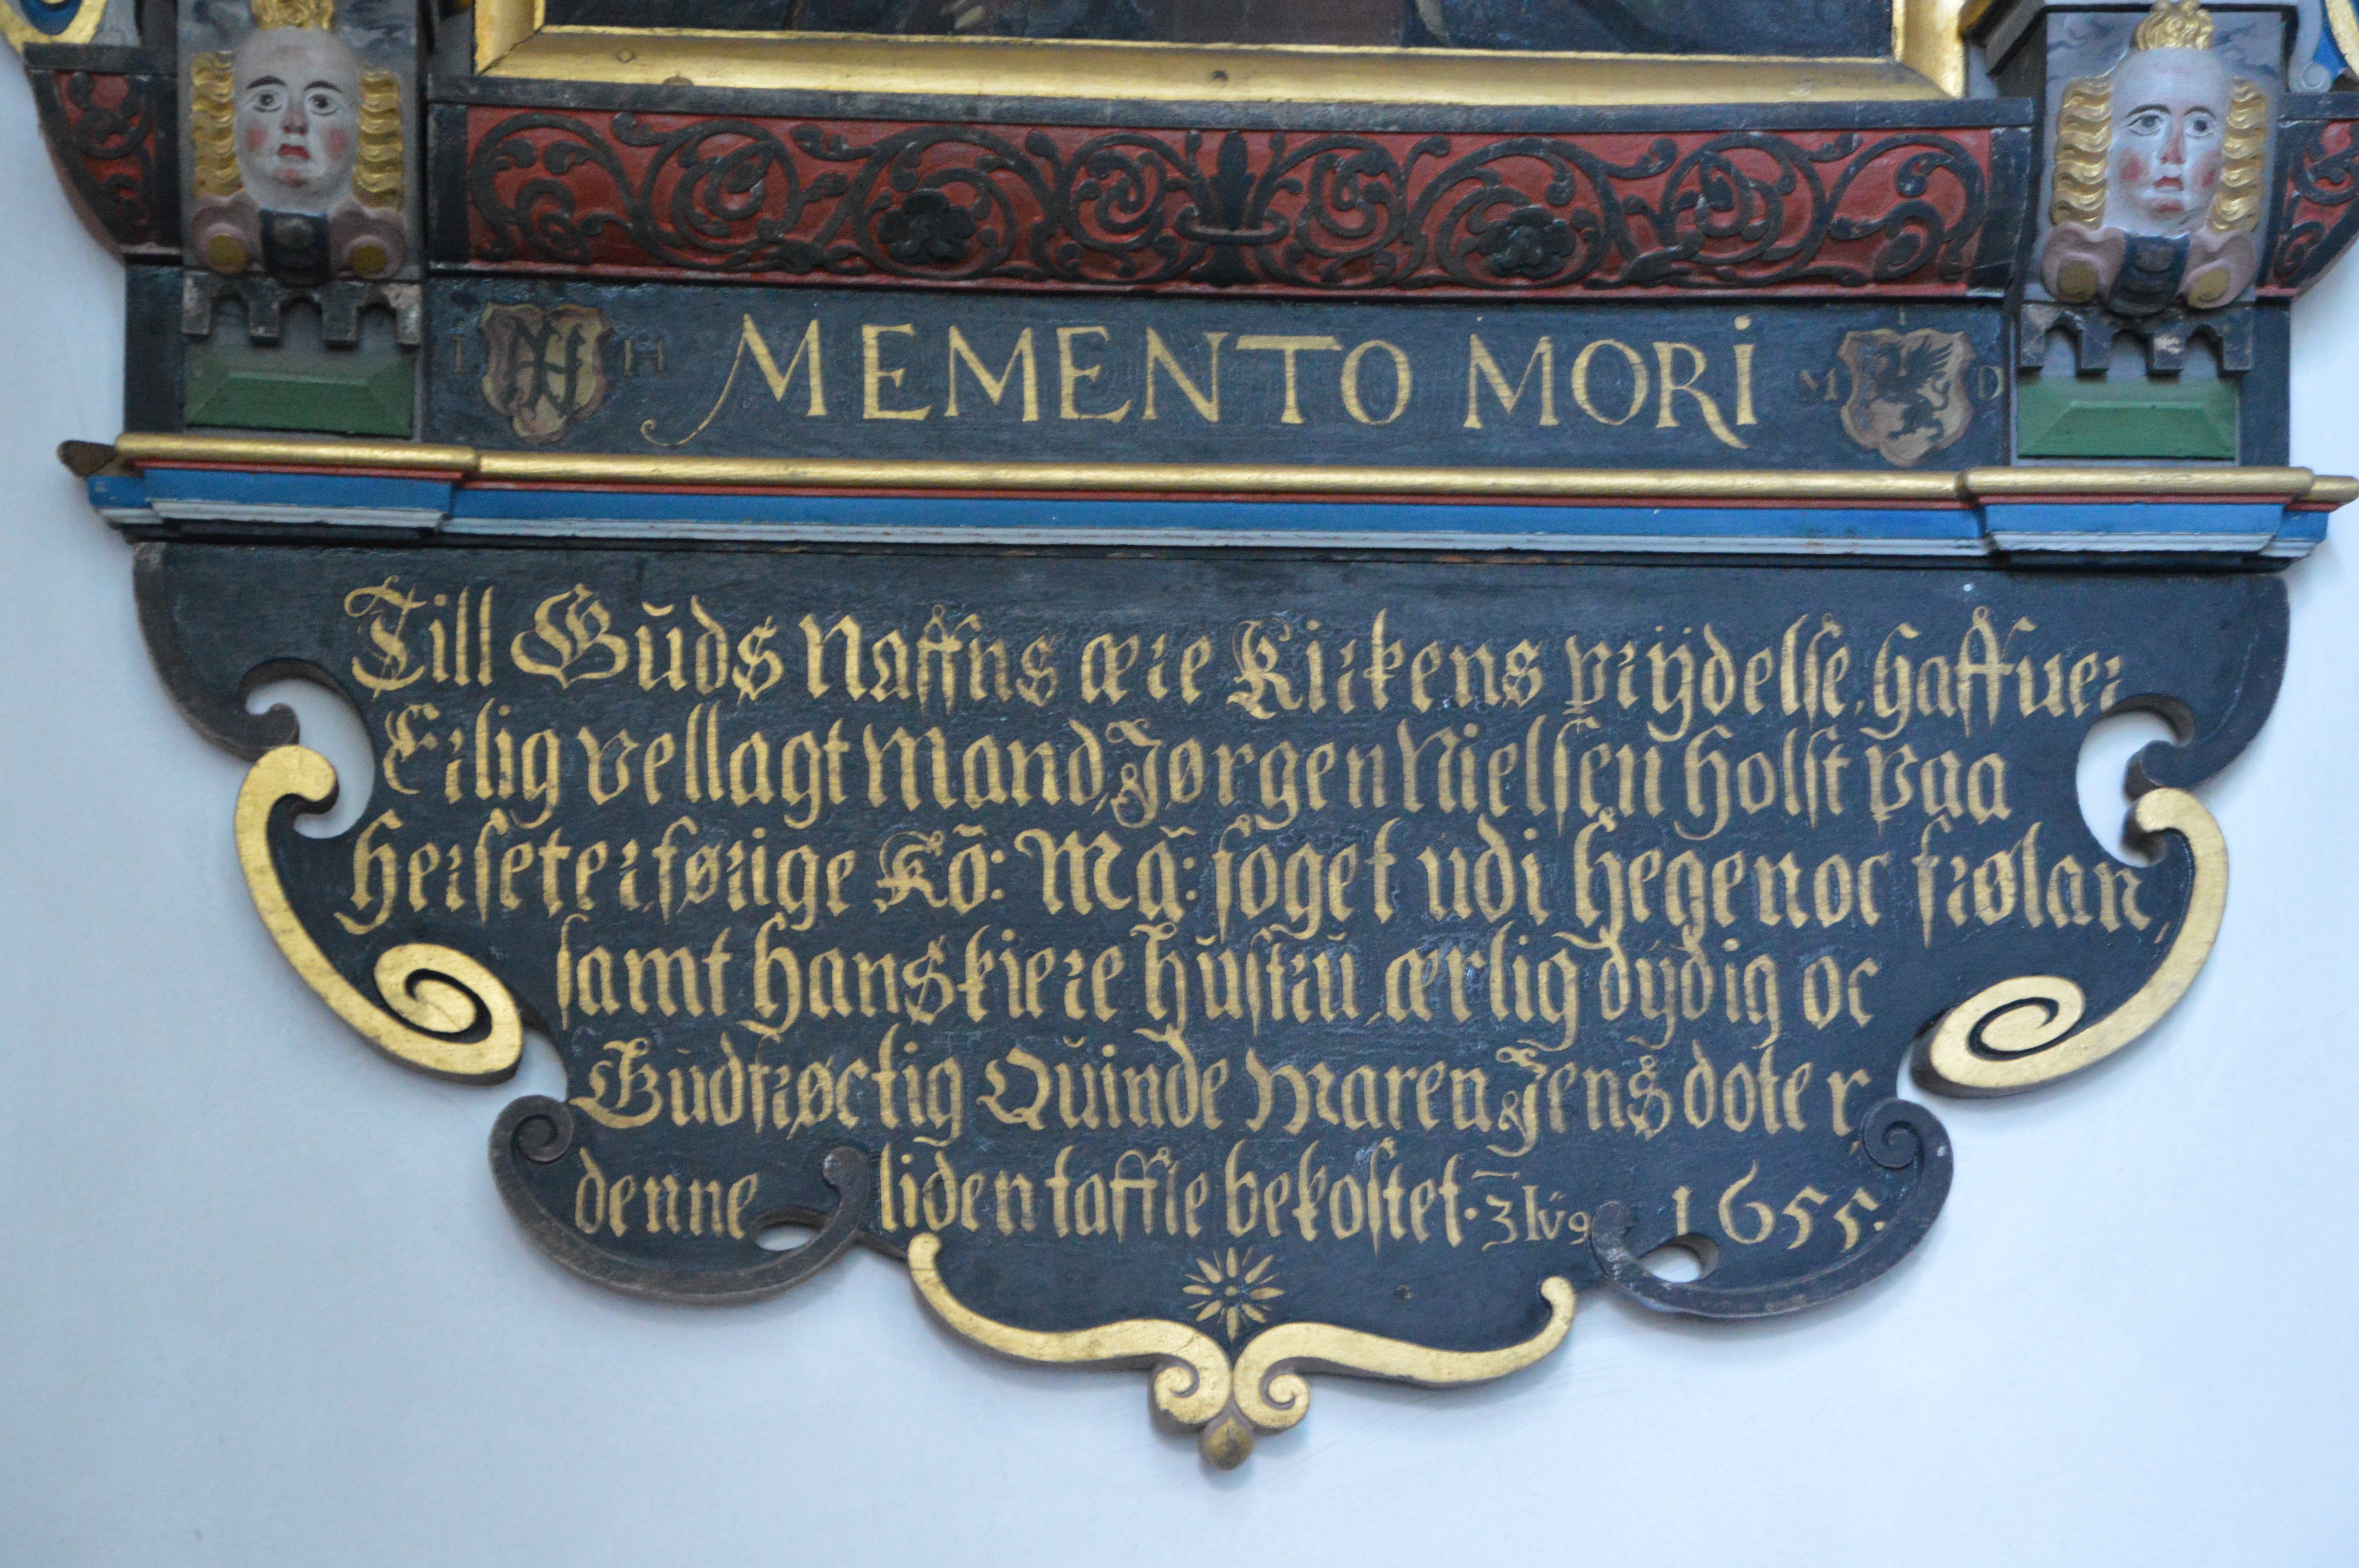 I H MEMENTO MORI M I D
Till Gŭds Naffns ære Kirkens prÿdelse, haffuer
Erlig vellagt Mand, Jørgen Nielsen Holst paa
Herseter, førige Kō: Mā: foget udi Hegen oc frølan,
samt Hans kiere hŭstrŭ, ærlig dÿdig oc
Gŭdfrøctig Qŭinde Maren Jens doter,
denne liden taffle bekostet. 3 Iv9 1655.